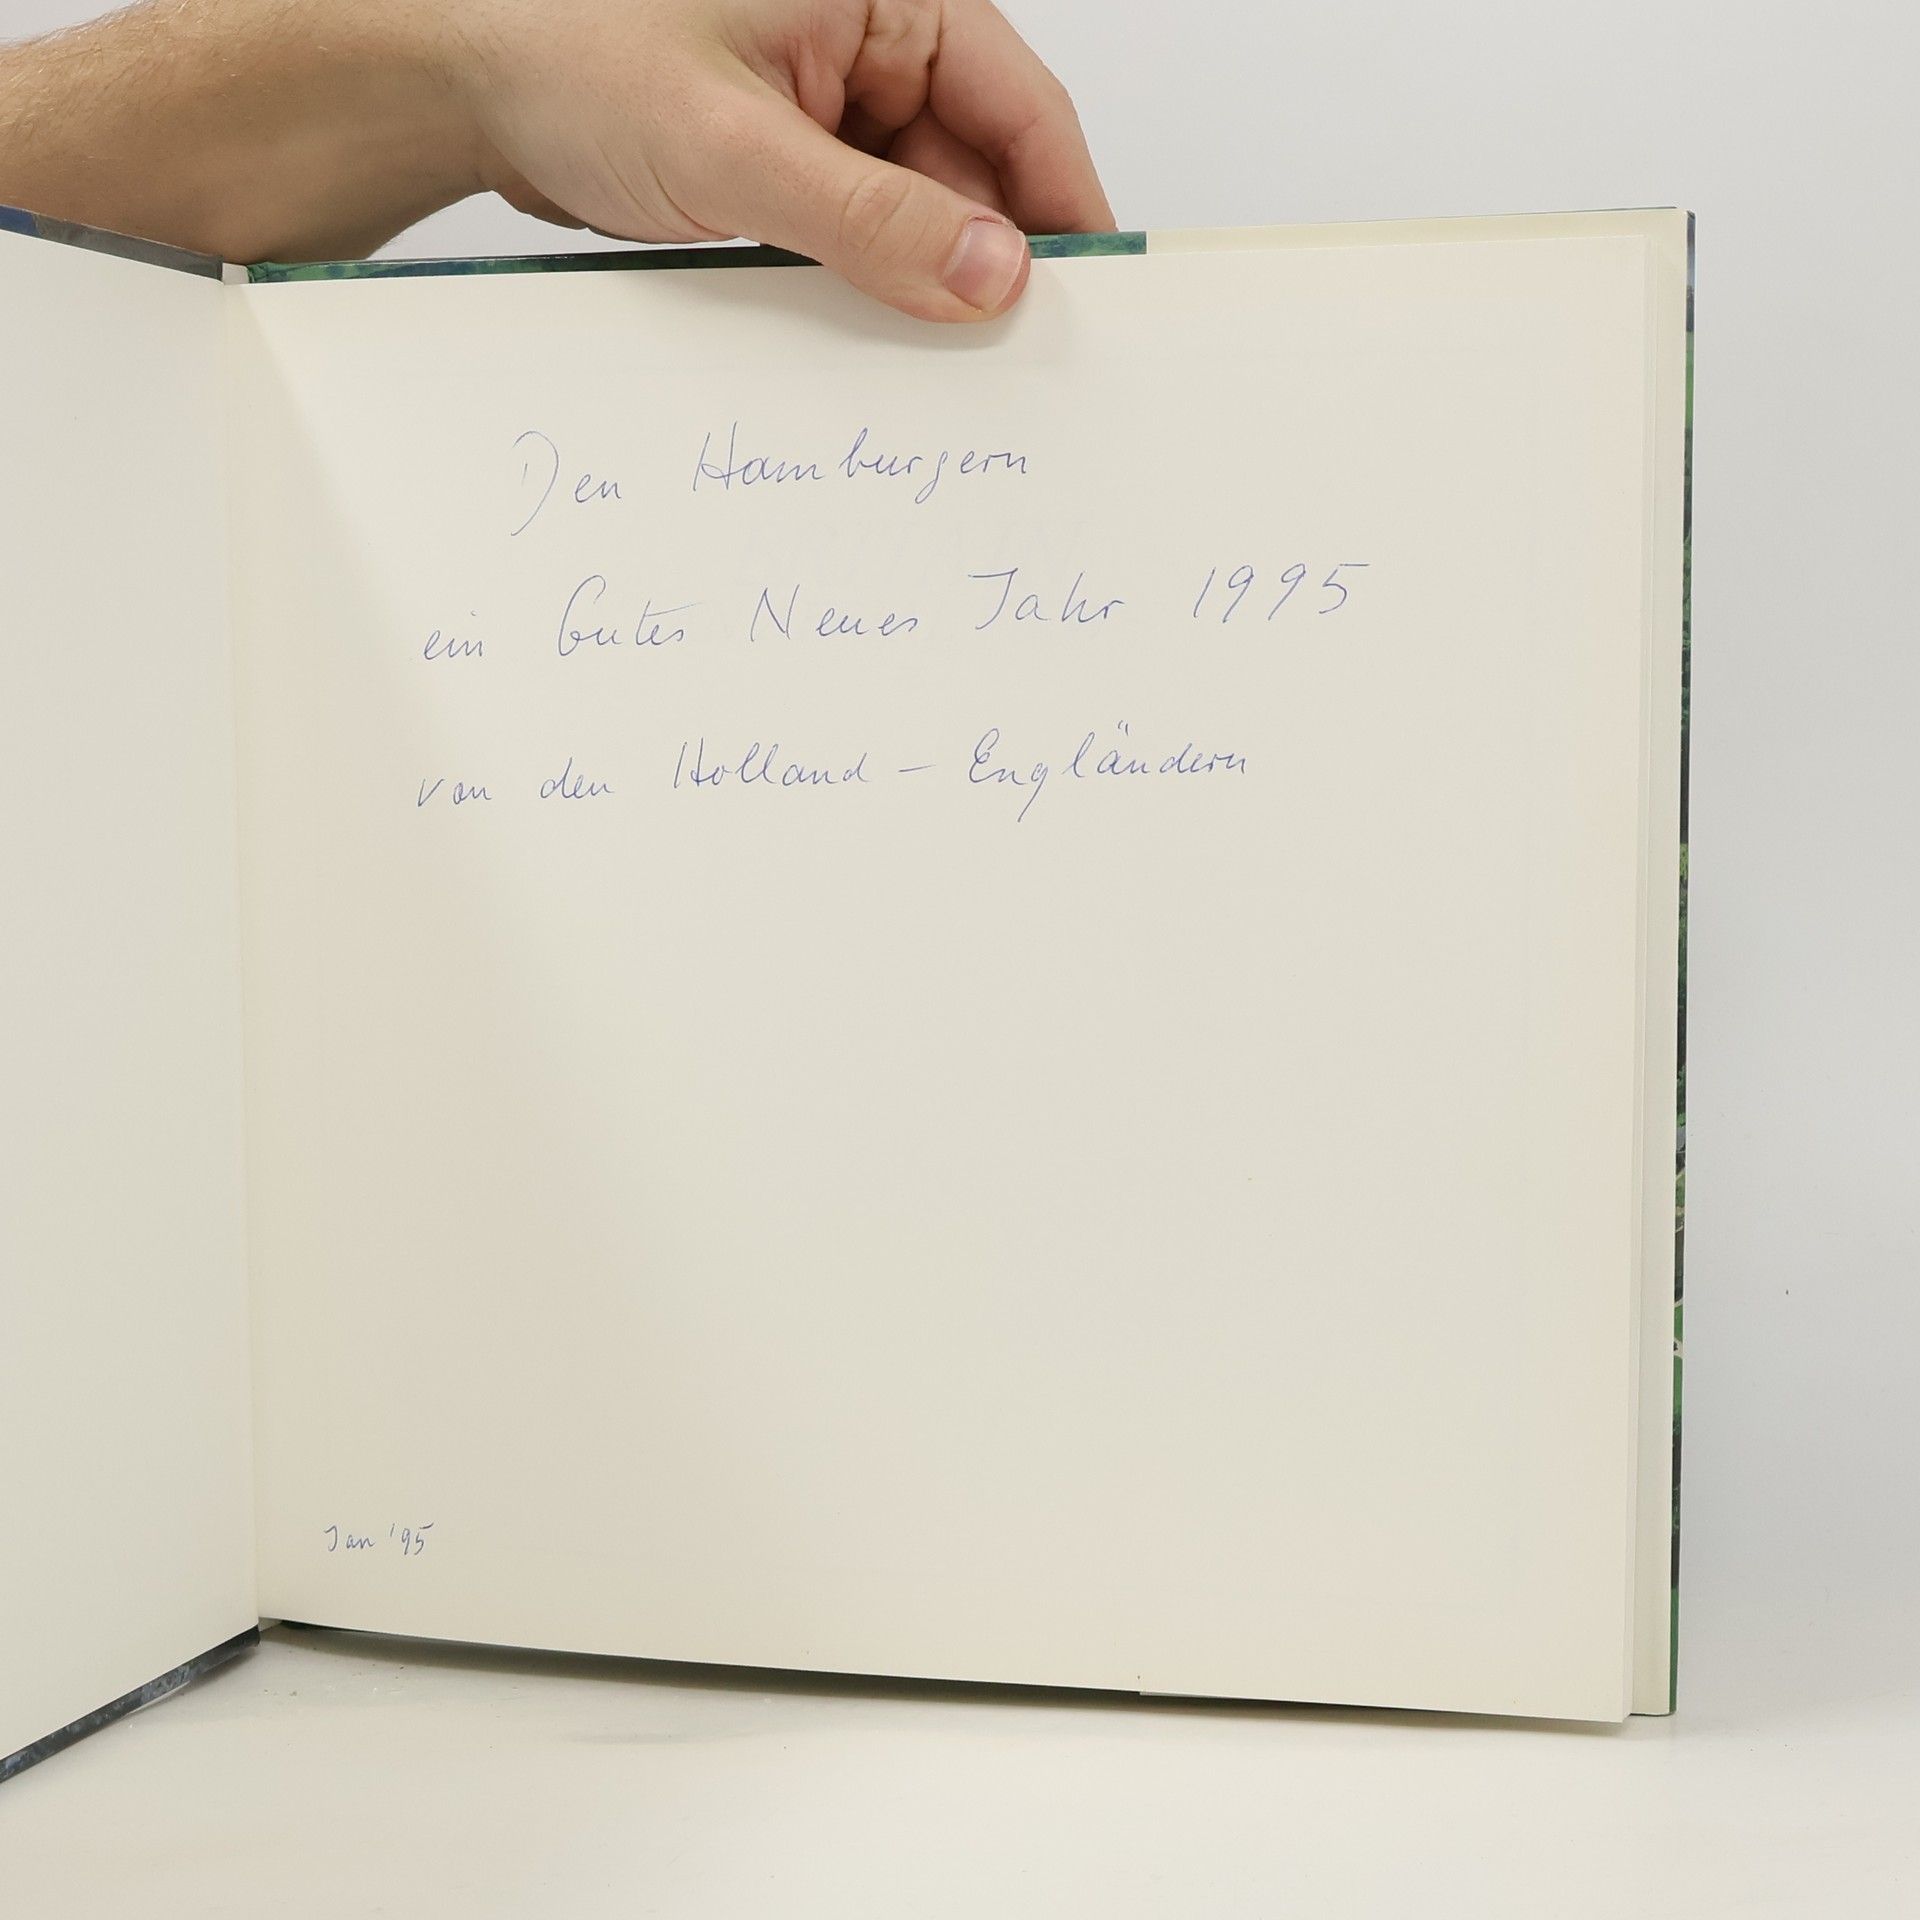 Den Hamburgern
ein Gutes Neues Jahr 1995
von den Holland – Engländern
Jan '95